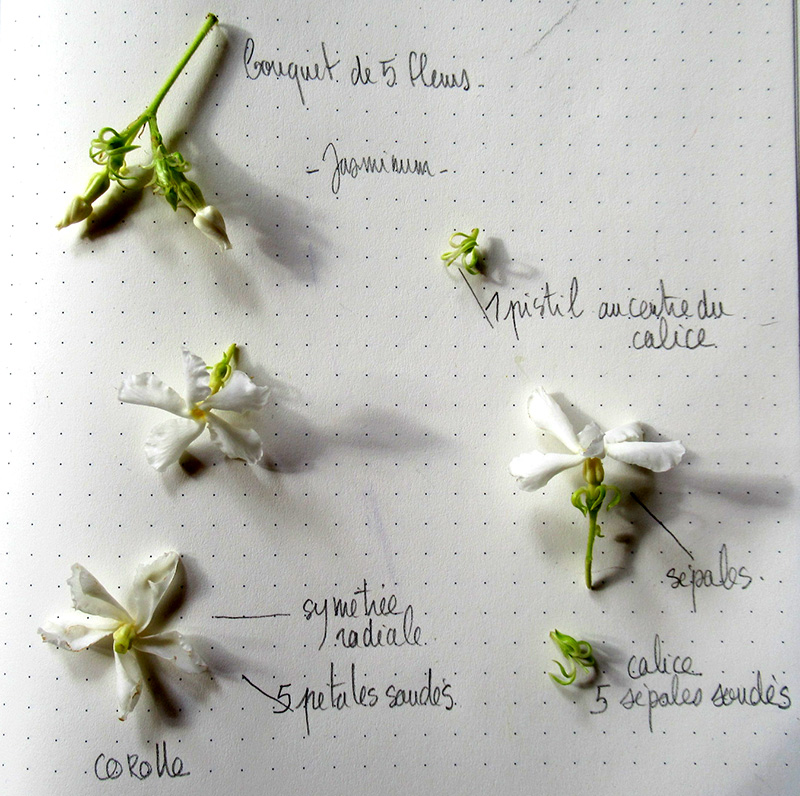 Bouquet de 5 fleurs.
- Jasminum -
1 pistil au centre du
calice
sépales.
symétrie
radiale
5 pétales soudés.
calice
5 sépales soudés
COROLLE